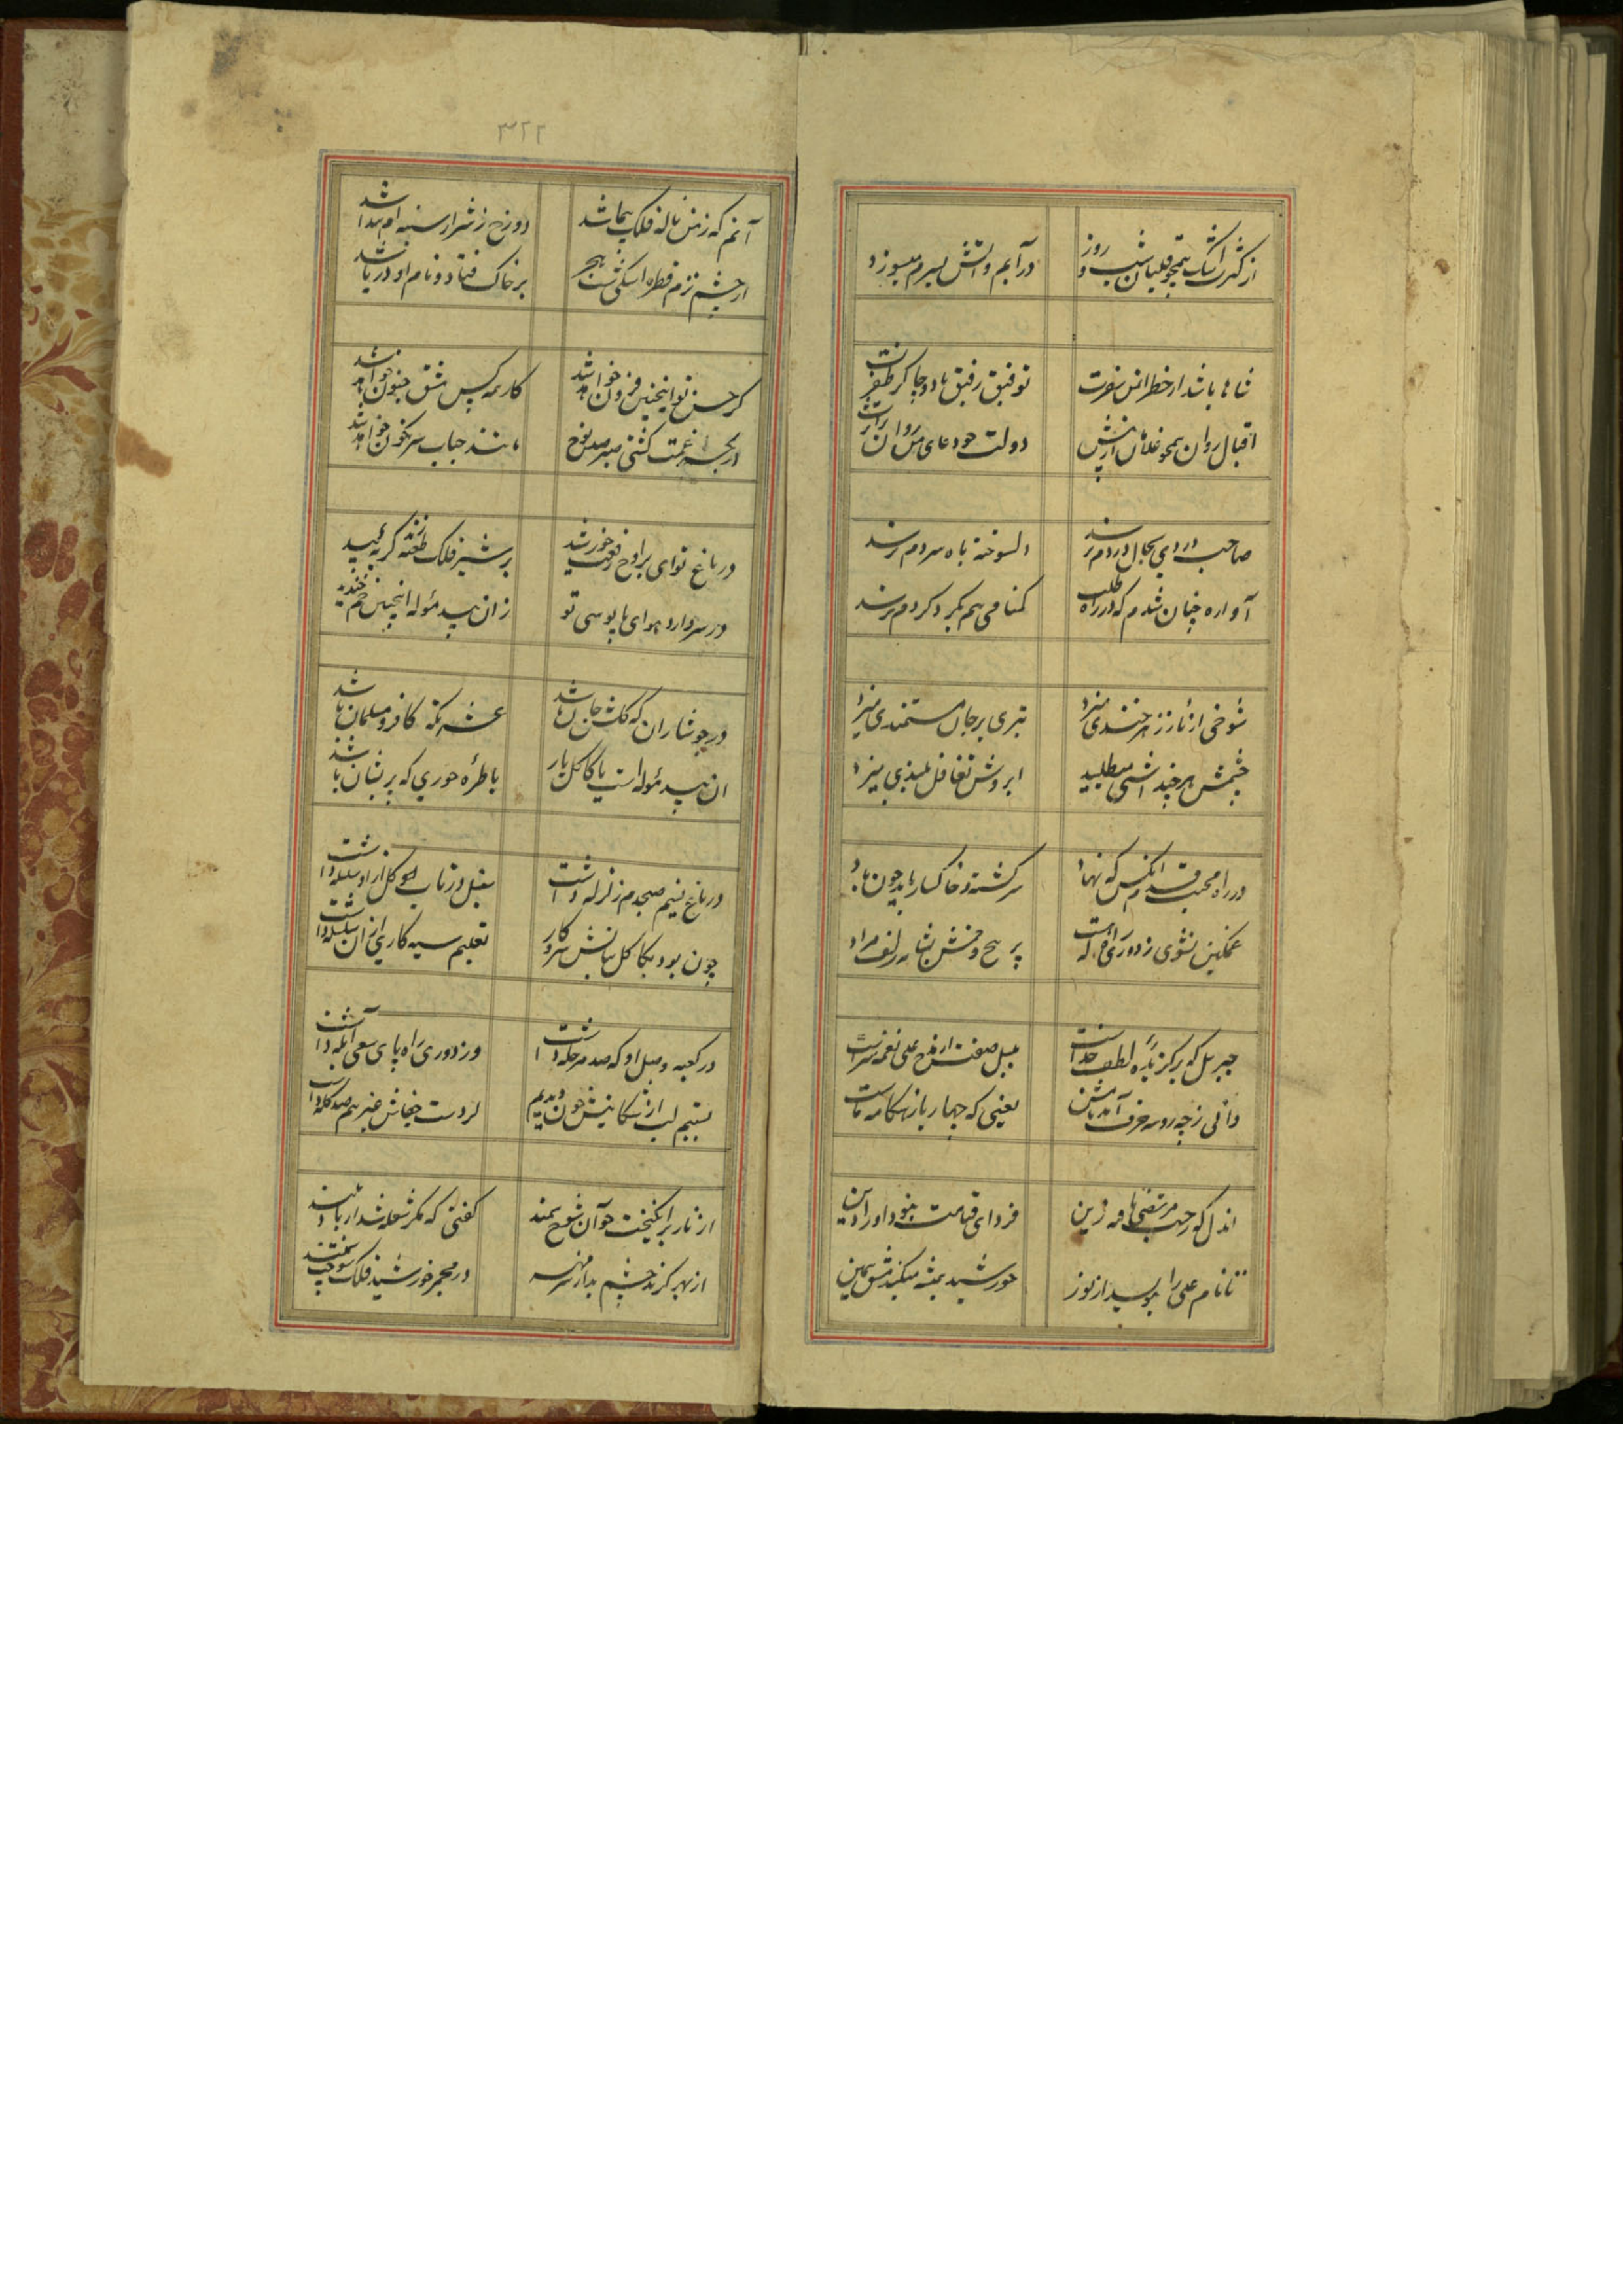 از کثرت اشک همچو قلیان شب و روز
درآبم و آتش بسرم میسوزد
شاها باشد از خطر ایمن سفرت
توفیق رفیق باد و چاکر ظفرت
اقبال روان همچو غلامان از پیش
دولت چو دعای من روان بر اثرت
صاحب دردی بحال دردم نرسد
دلسوخته باه سردم نرسد
آواره چنان شدم که در راه طلب
گمنامی هم بگرد گردم نرسد
شوخی از ناز زهرخندی میزد
تیری بر جان مستمندی میزد
چشمش هر چند آشتی میطلبید
ابروش تغافل بلندی میزد
در راه محبت قدم انکس که نهاد
سرگشته و خاکسار باید چون باد
غمگین نشوی ز دوری راه که هست
پر پیچ و خمش نشان زلف مراد
جبریل که برگزیده لطف خداست
بلبل صفت از مدح علی نغمه سراست
دانی ز چه رو سه حرف آمد نامش
یعنی که چهار یار هنگامه ماست
اندل که ز حب مرتضی یافته زین
فردای قیامت نبود او را دین
تا نام علی را بنویسد از نور
خورشید همیشه میکند مشق بعین
۳۲۲
آنم که ز من ناله فلک پیما شد
دوزخ ز شرار سینه ام پیدا شد
از چشم ترم قطره اشکی شب هجر
بر خاک فتاد و نام او دریا شد
گر حسن تو اینچنین فزون خواهد شد
کار همه کس مشق جنون خواهد شد
در لجه غمت کشتی صبر صد نوح
مانند حباب سرنگون خواهد شد
در باغ تو ای بر اوج رفعت خورشید
بر شیر فلک طعنه زند گربه بید
در سر دارد هوای پابوسی تو
زان بید مؤله اینچنین خم گردید
در جوشاران که گلشن جان باشد
عشرتکده کافر و مسلمان باشد
ان بید مؤله است یا کاکل یار
یا طره حوری که پریشان باشد
در باغ نسیم صبحدم زلزله داشت
سنبل در تاب بوی گل از او سلسله داشت
چون بود بکاکل بتانش سر و کار
تعلیم سیه کاری از ان سلسله داشت
در کعبه وصل او که صد مرحله داشت
وز دوری راه پای سعی آبله داشت
بستیم لب از شکایتش چون دیدیم
از دست جفاش غیر هم صد گله داشت
از ناز برانگیخت چو آن شوخ سمند
گفتی که مگر شعله شد از باد بلند
از بهر گزند چشم بد از مهر سپهر
در مجمر خورشید فلک سوخت سپند